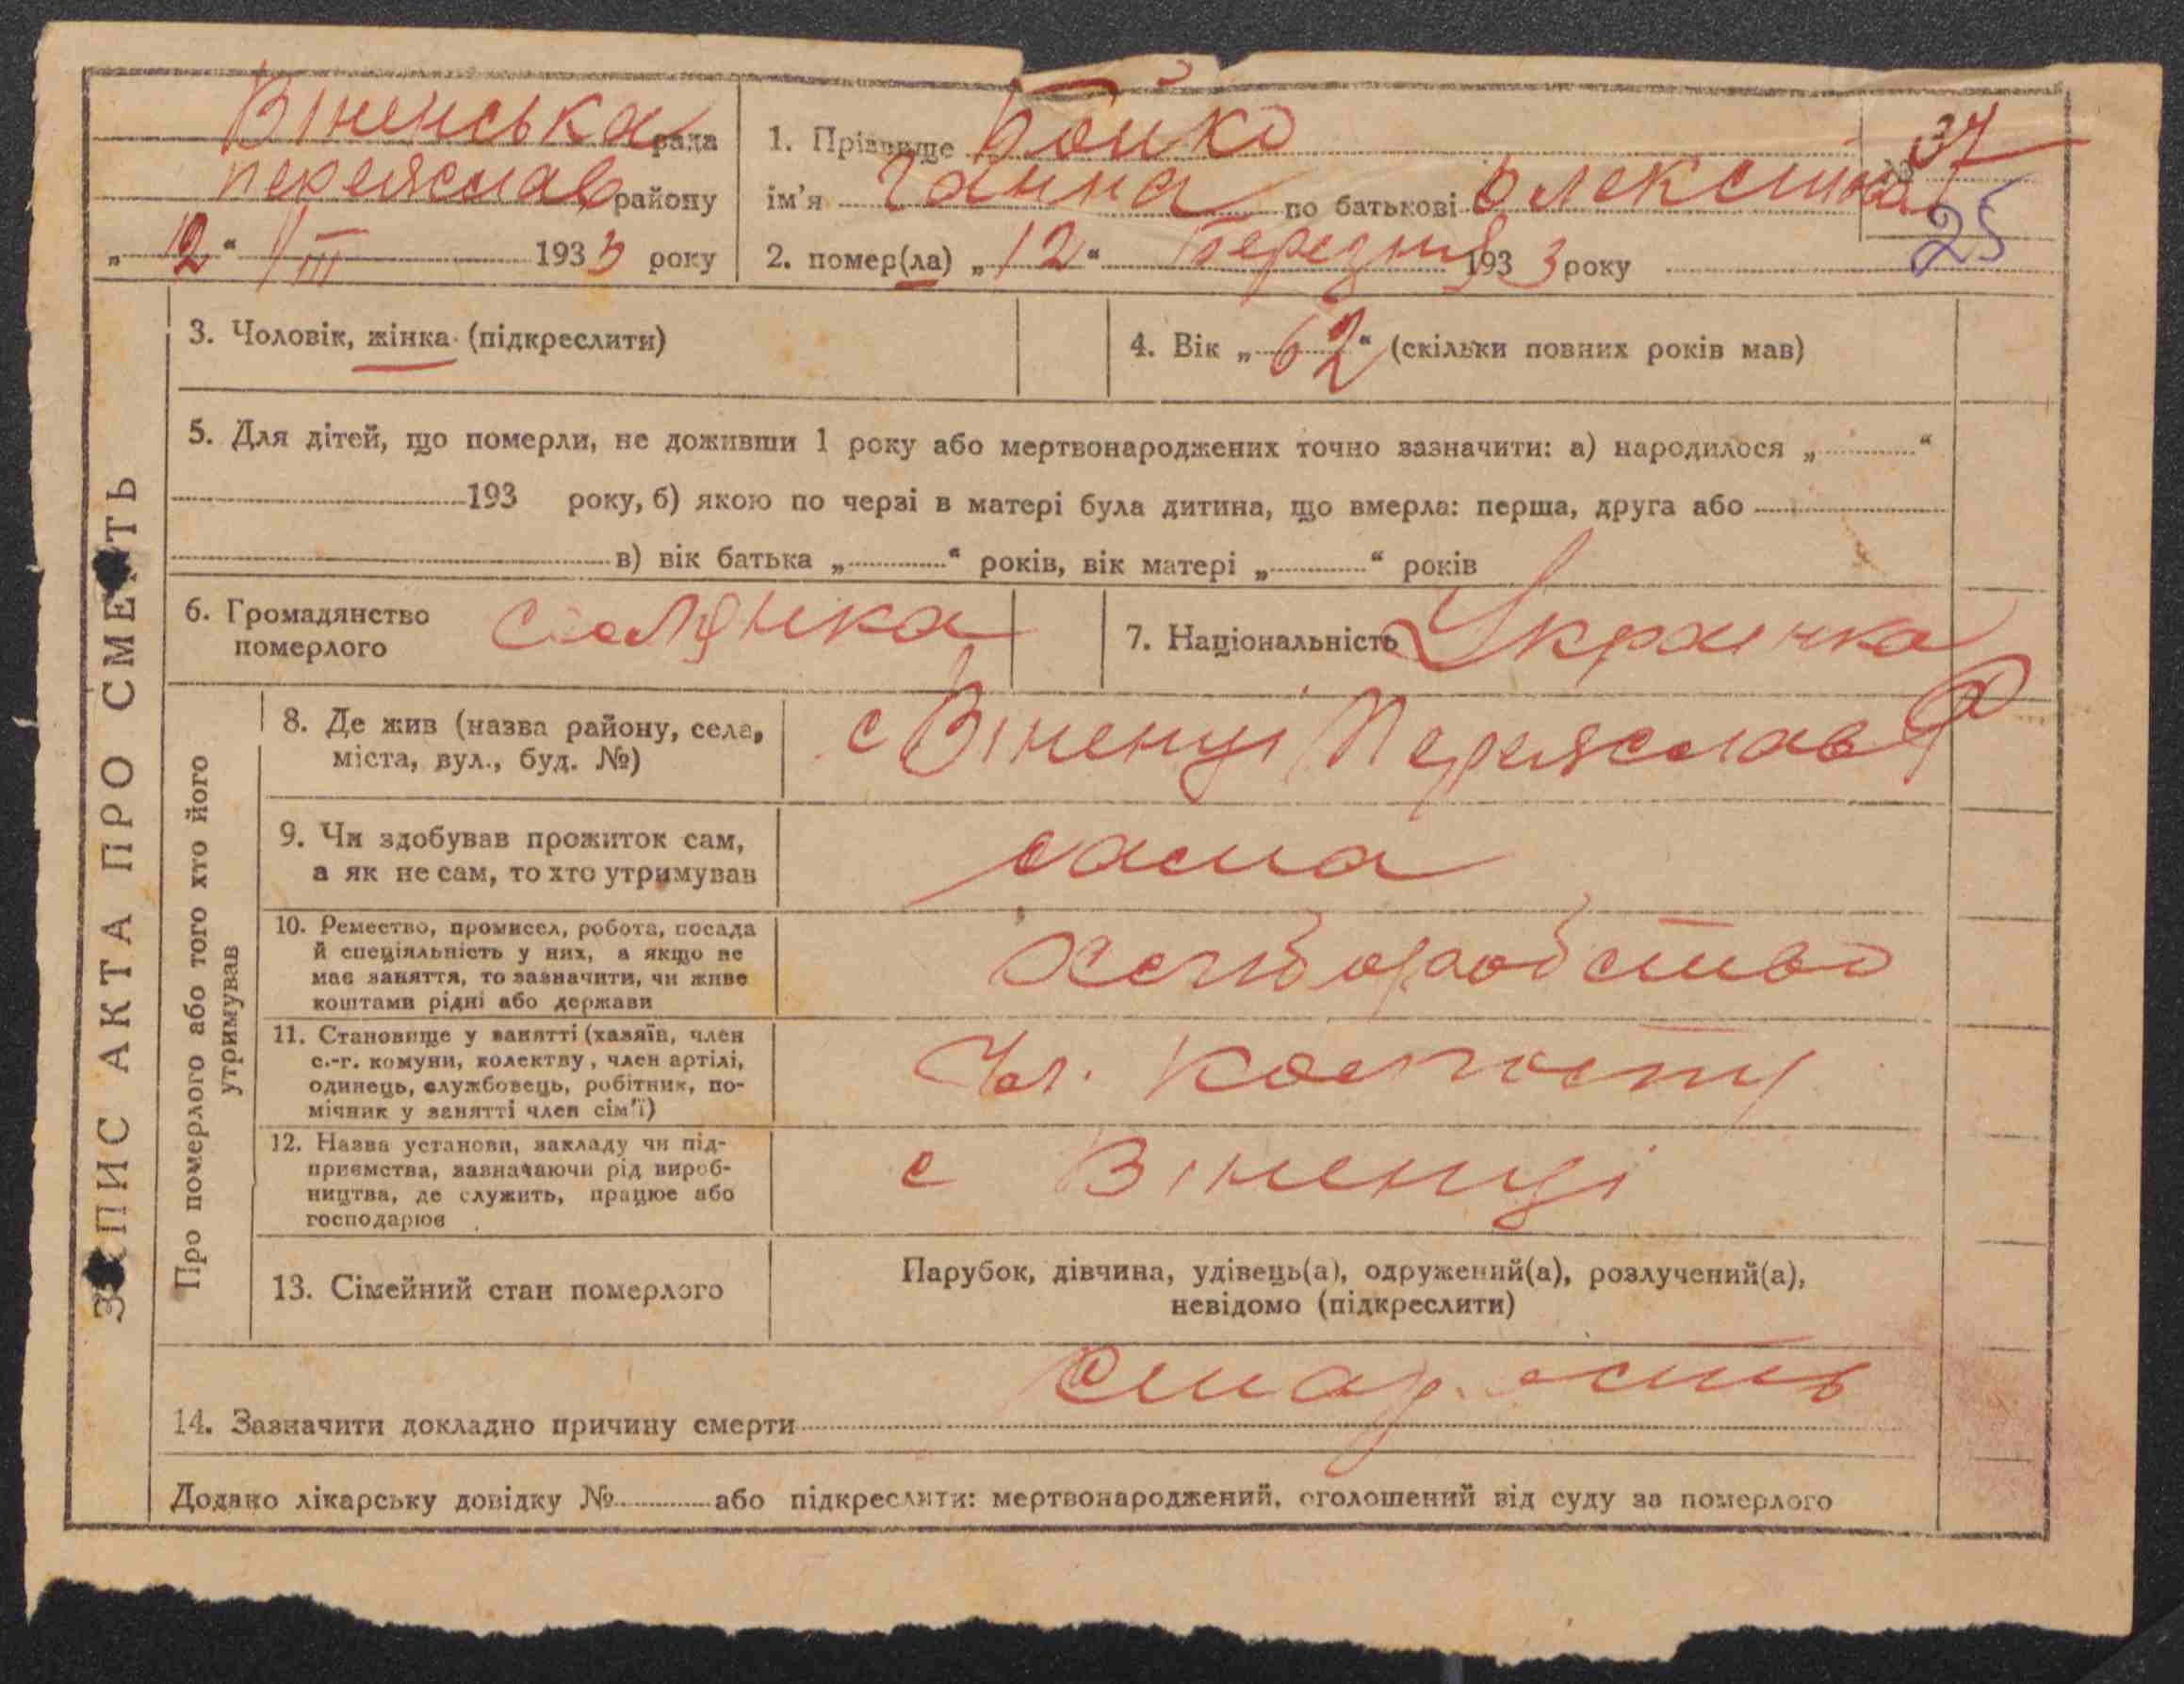 ЗАПИС АКТА ПРО СМЕРТЬ
Віненська рада
переяслав району
„12“ III 1933 року
1. Прізвище Бойко
ім'я Ганна по батькові
2. помер(ла) „12“ березня 1933 року
37
25
3. Чоловік, жінка (підкреслити)
4. Вік „62“ (скільки повних років мав)
5. Для дітей, що померли, не доживши 1 року або мертвонароджених точно зазначити: а) народилося „ “
193 року, б) якою по черзі в матері була дитина, що вмерла: перша, друга або
в) вік батька „ “ років, вік матері „ “ років
6. Громадянство
померлого
селянка
7. Національність Украинка
Про померлого або того хто його
утримував
8. Де жив (назва району, села,
міста, вул., буд. №)
с Віненці Переяслав Р
9. Чи здобував прожиток сам,
а як не сам, то хто утримував
сама
10. Ремество, промисел, робота, посада
й спеціяльність у них, а якщо не
має заняття, то зазначити, чи живе
коштами рідні або держави
Хлiборобство
11. Становище у занятті (хазяїн, член
с.-г. комуни, колективу, член артілі,
одинець, службовець, робітник, по-
мічник у занятті член сім'ї)
Чл. колгоспу
12. Назва установи, закладу чи під-
приємства, зазначаючи рід вироб-
ництва, де служить, працює або
господарює
с Віненці
13. Сімейний стан померлого
Парубок, дівчина, удівець(а), одружений(а), розлучений(а),
невідомо (підкреслити)
14. Зазначити докладно причину смерти старость
Додано лікарську довідку № або підкреслити: мертвонароджений, оголошений від суду за померлого